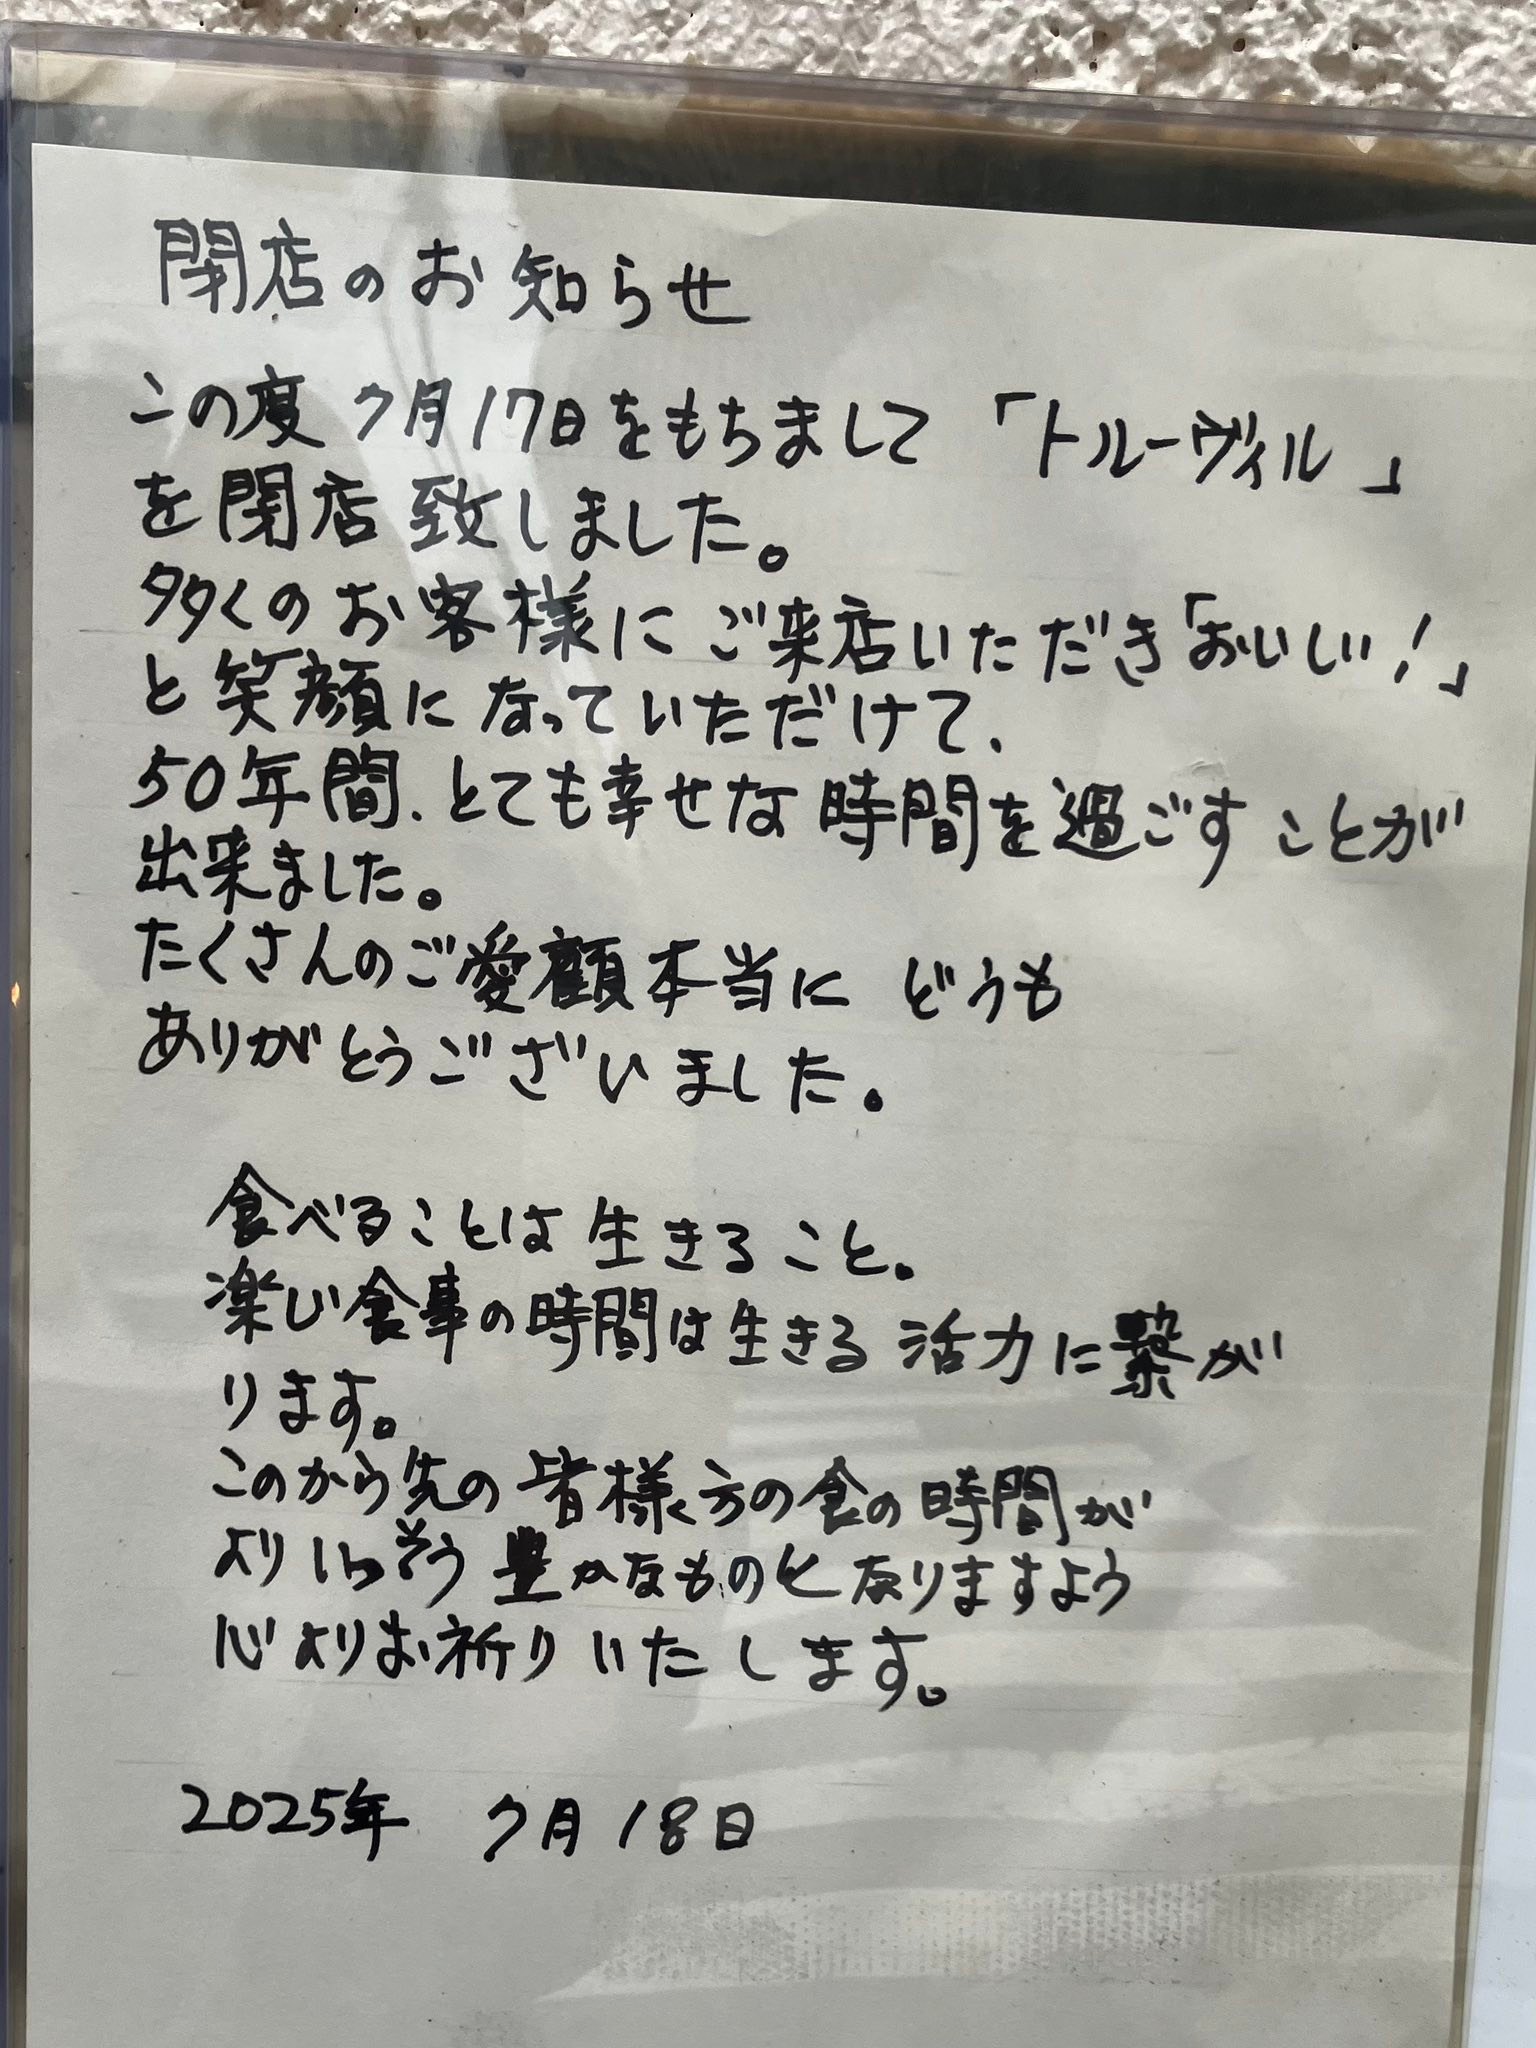 閉店のお知らせ
この度 7月17日をもちまして 「トルーヴィル」
を閉店致しました。
多くのお客様に ご来店いただき「おいしい!」
と笑顔になっていただけて、
50年間、とても幸せな時間を過ごすことが
出来ました。
たくさんのご愛顧本当に どうも
ありがとうございました。
食べることは生きること。
楽しい食事の時間は生きる活力に繋が
ります。
このから先の皆様方の食の時間が
よりいっそう豊かなものとなりますよう
心よりお祈りいたします。
2025年 7月18日